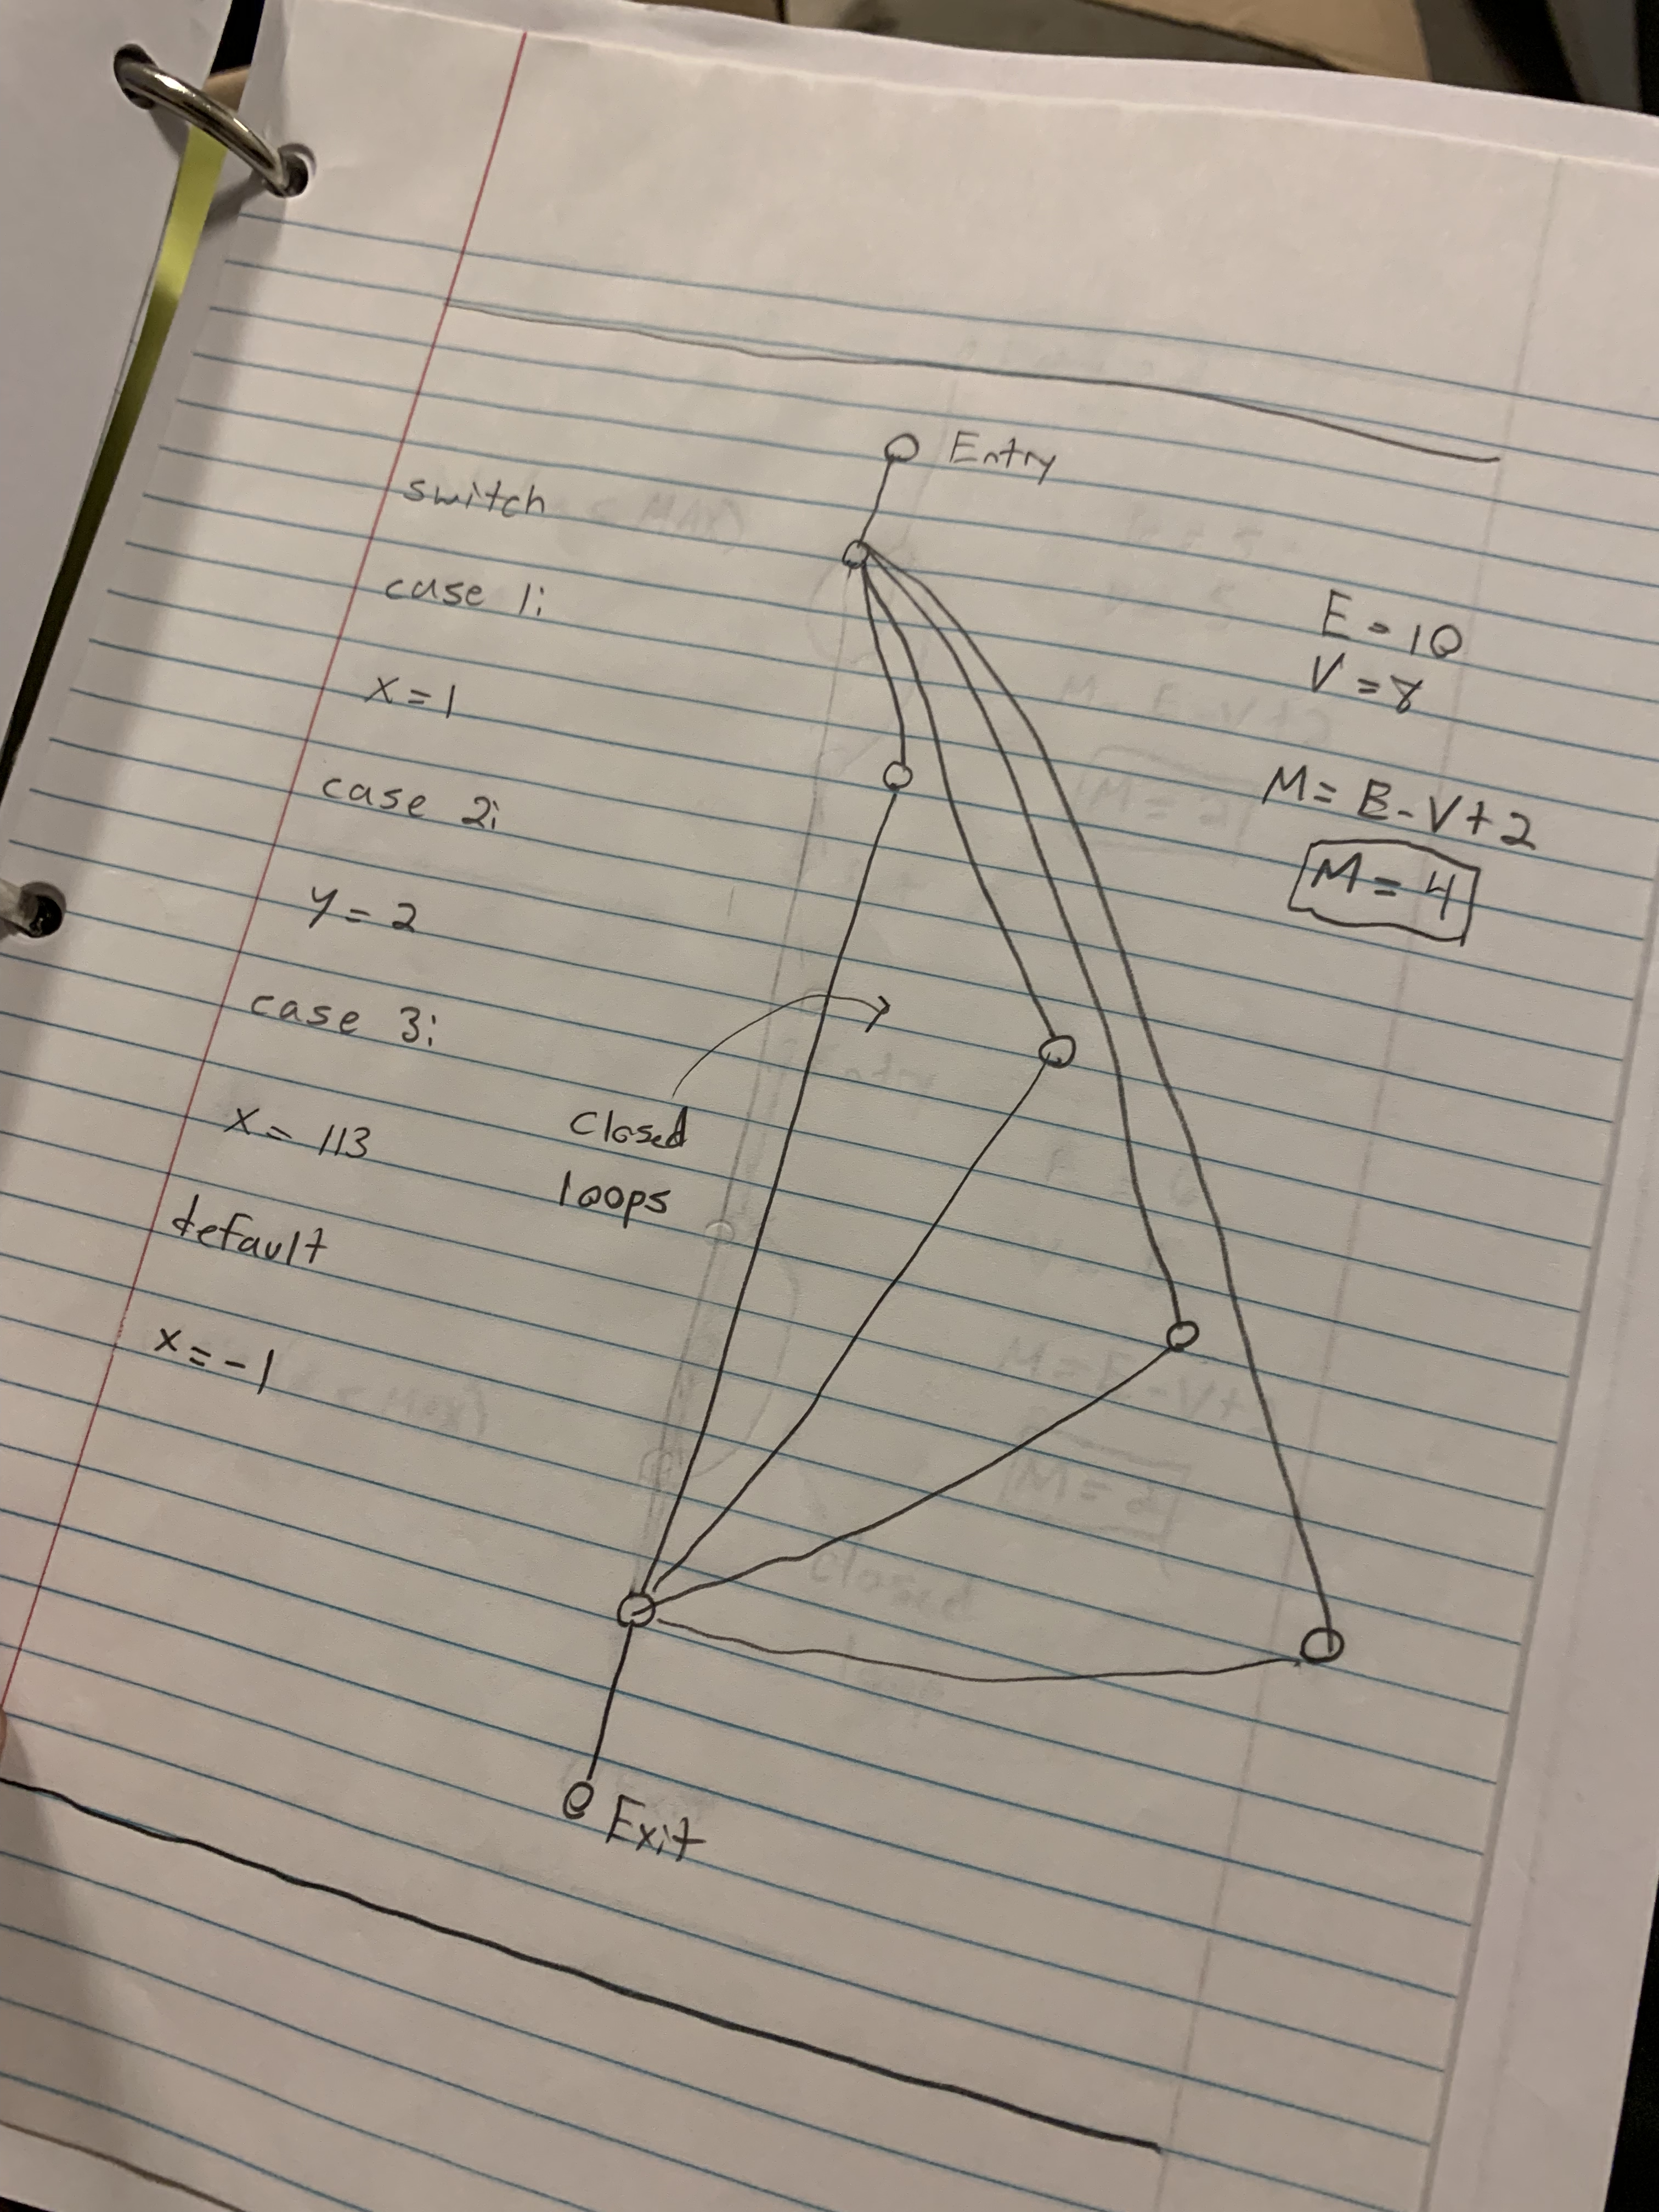 Entry
switch
case 1:
x = 1
case 2:
y = 2
case 3:
x = 113
default
x = -1
Closed
loops
Exit
E = 10
V = 8
M = E - V + 2
M = 4